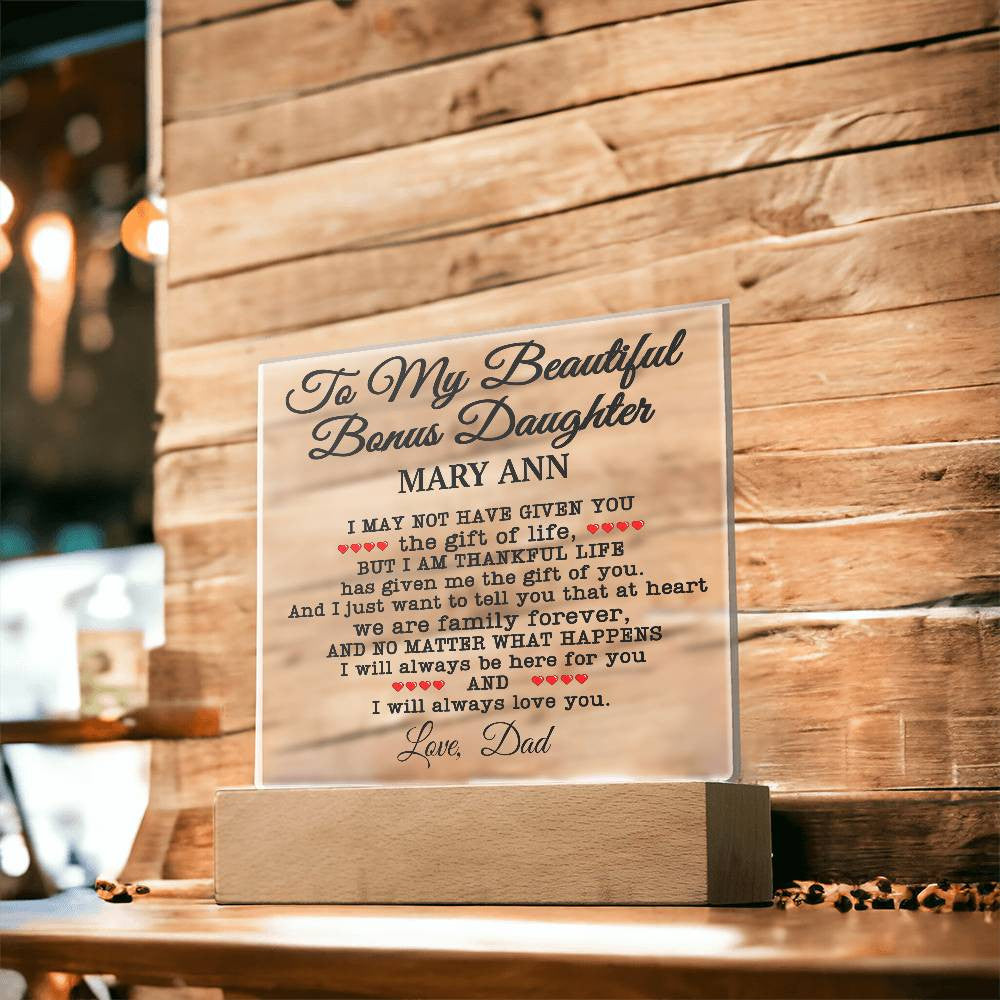 To My Beautiful
Bonus Daughter
MARY ANN
I MAY NOT HAVE GIVEN YOU
the gift of life,
BUT I AM THANKFUL LIFE
has given me the gift of you.
And I just want to tell you that at heart
we are family forever,
AND NO MATTER WHAT HAPPENS
I will always be here for you
AND
I will always love you.
Love, Dad